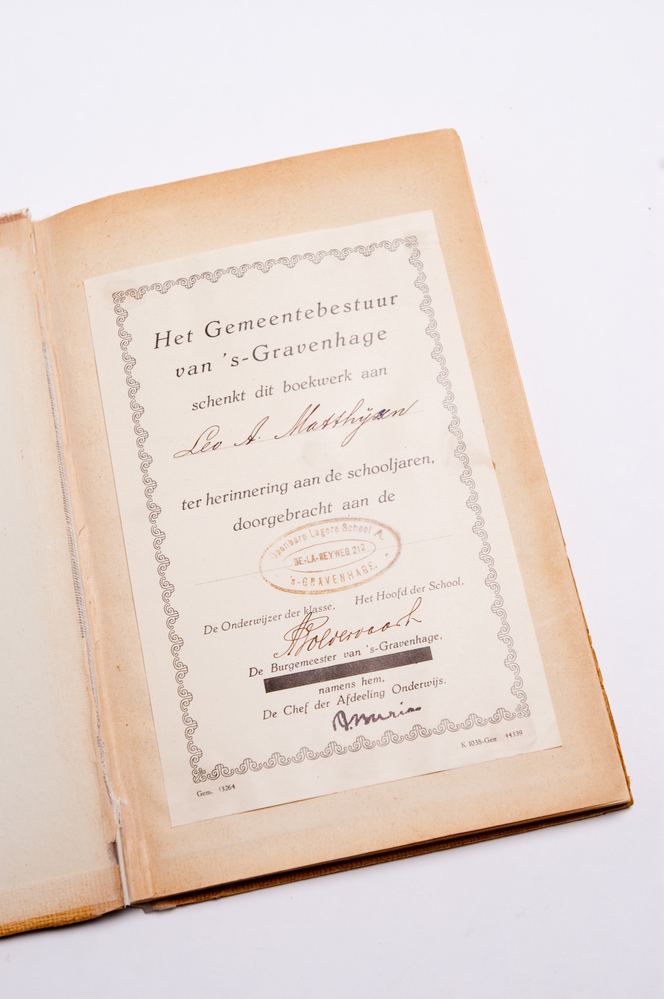 Het Gemeentebestuur
van 's-Gravenhage
schenkt dit boekwerk aan
Leo A. Matthijsen
ter herinnering aan de schooljaren,
doorgebracht aan de
Openbare Lagere School A.
DE-LA-REYWEG 212
's-GRAVENHAGE.
De Onderwijzer der klasse,
Het Hoofd der School,
De Burgemeester van 's-Gravenhage,
namens hem,
De Chef der Afdeeling Onderwijs,
Gem. 13264
K 1038-Gem 44339